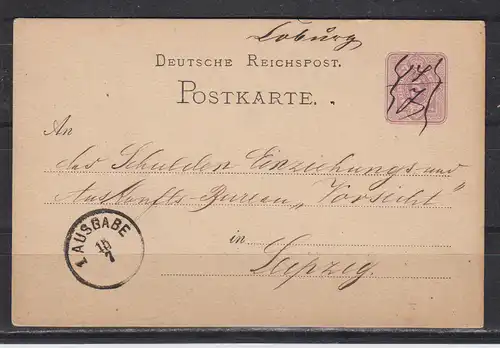 Coburg
DEUTSCHE REICHSPOST.
POSTKARTE.
14
7
An
das Schulden Einziehungs und
Auskunfts-Bureau „Vorsicht"
in
Leipzig.
1 AUSGABE
15
7